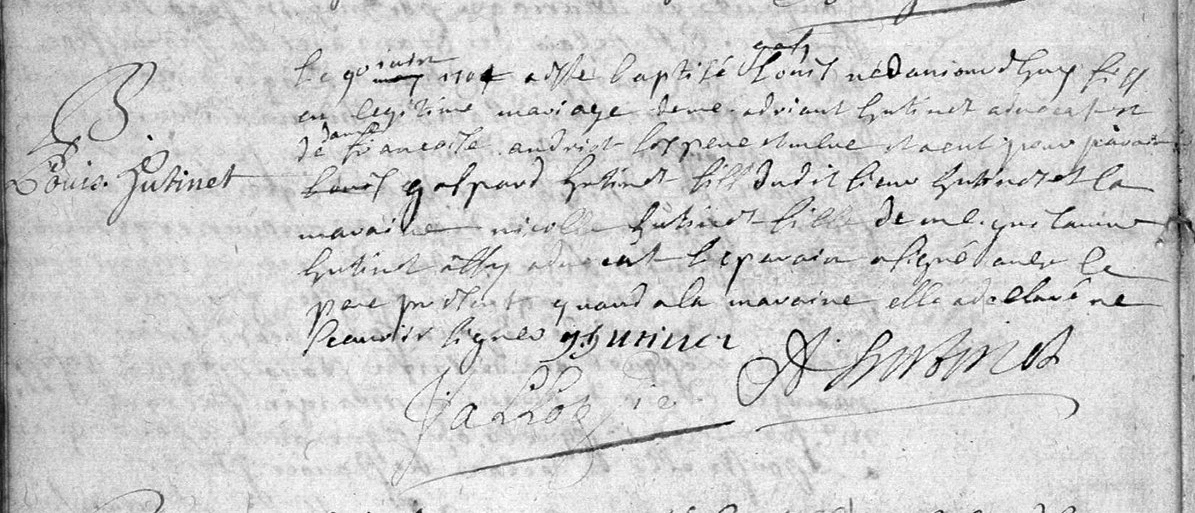 B
Louis Hutinet
Le 9e juin 1704 a esté baptisé Louis né daujourdhuy fils
en legitime mariage de me adriant hutinet advocat et
de dame francoise andriet les pere et mere et a eut pour parain
Louis gaspard hutinet fils dudit sieur hutinet et la
maraine nicolle hutinet fille de me
hutinet aussy advocat le parain a signé avec le
pere present quand a la maraine elle a declaré ne
scavoir signer g hutinet
A Hutinet